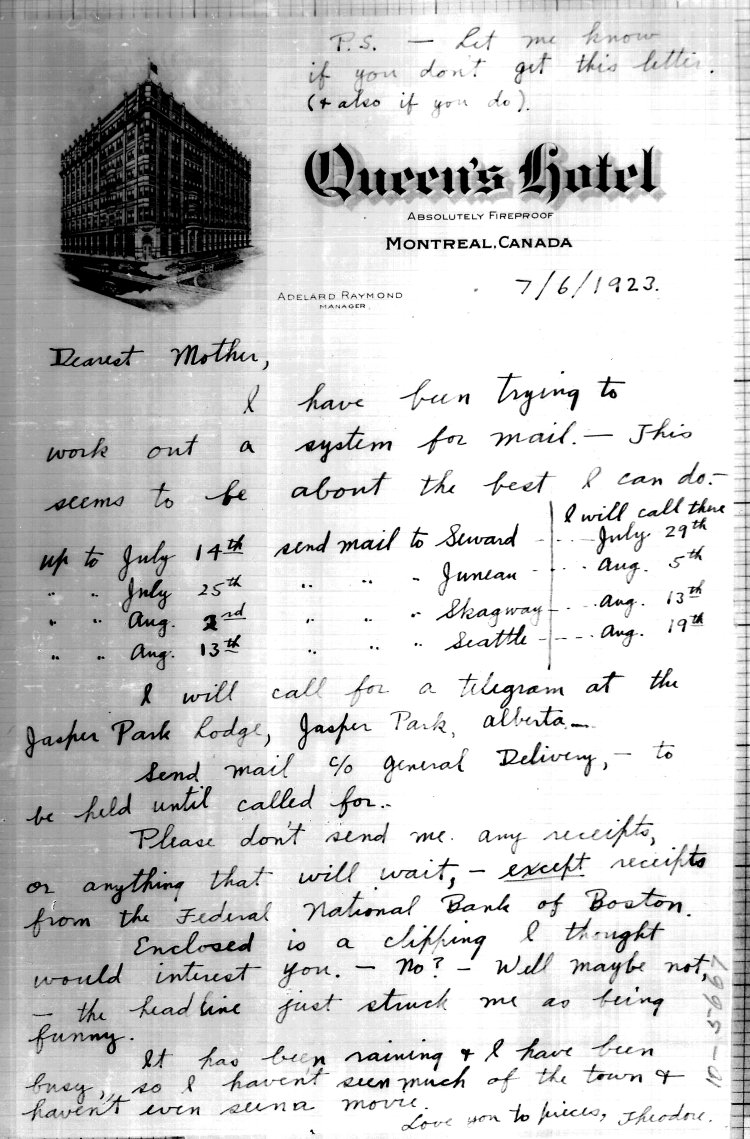 P.S. — Let me know
if you don't get this letter.
(+ also if you do).
Queen's Hotel
Absolutely Fireproof
Montreal, Canada
Adelard Raymond
Manager
7/6/1923.
Dearest Mother,
I have been trying to
work out a system for mail. — This
seems to be about the best I can do. —
I will call there
up to July 14th send mail to Seward - ... July 29th
" " July 25th " " " Juneau - ... Aug. 5th
" " Aug. 2nd " " " Skagway - ... Aug. 13th
" " Aug. 13th " " " Seattle - ... Aug. 19th
I will call for a telegram at the
Jasper Park Lodge, Jasper Park, Alberta —
Send mail c/o General Delivery, — to
be held until called for. -
Please don't send me any receipts,
or anything that will wait, — except receipts
from the Federal National Bank of Boston.
Enclosed is a clipping I thought
would interest you. — No? — Well maybe not,
— the headline just struck me as being
funny.
It has been raining + I have been
busy, so I haven't seen much of the town +
haven't even seen a movie.
Love you to pieces, Theodore.
10-5667